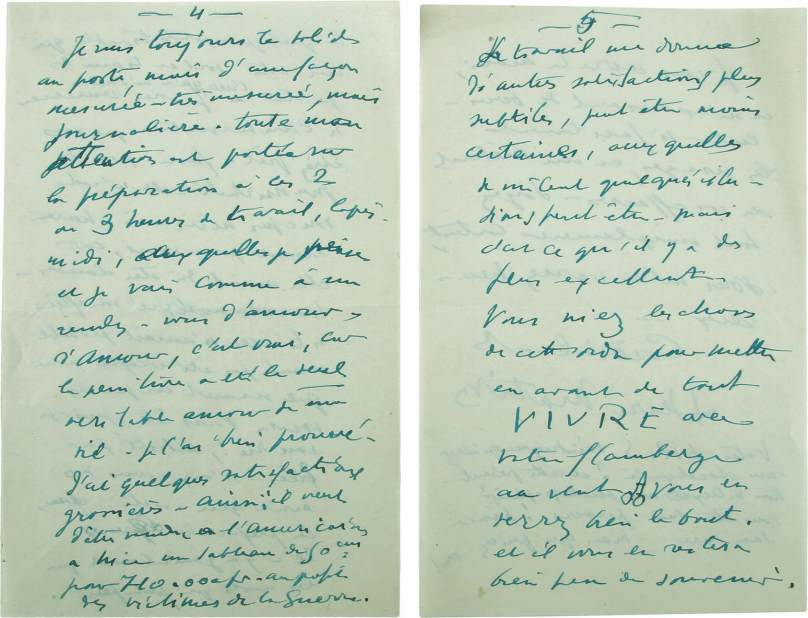 — 4 —
Je suis toujours le solide
au poste, mais d'une façon
mesurée — très mesurée, mais
journalière. toute mon
attention est portée sur
la préparation à ces 2
ou 3 heures de travail, l'après-
midi, auxquelles je pense
et je vais comme à un
rendez-vous d'amour —
d'amour, c'est vrai, car
la peinture a été le seul
véritable amour de ma
vie — je l'ai bien prouvé —
J'ai quelques satisfactions
grossières — ainsi il vient
d'être vendu à l'américaine
à Nice un tableau de 50 cent
pour 710.000 fr. au profit
des victimes de la Guerre.
— 5 —
Le travail me donne
d'autres satisfactions plus
subtiles, peut être moins
certaines, auxquelles
se mêlent quelques illu-
sions peut être — mais
c'est ce qu'il y a de
plus excellent.
Vous niez les choses
de cette sorte pour mettre
en avant de tout
VIVRE avec
votre flamberge
au vent. Vous en
verrez bien le bout.
et il vous en restera
bien peu de souvenir.